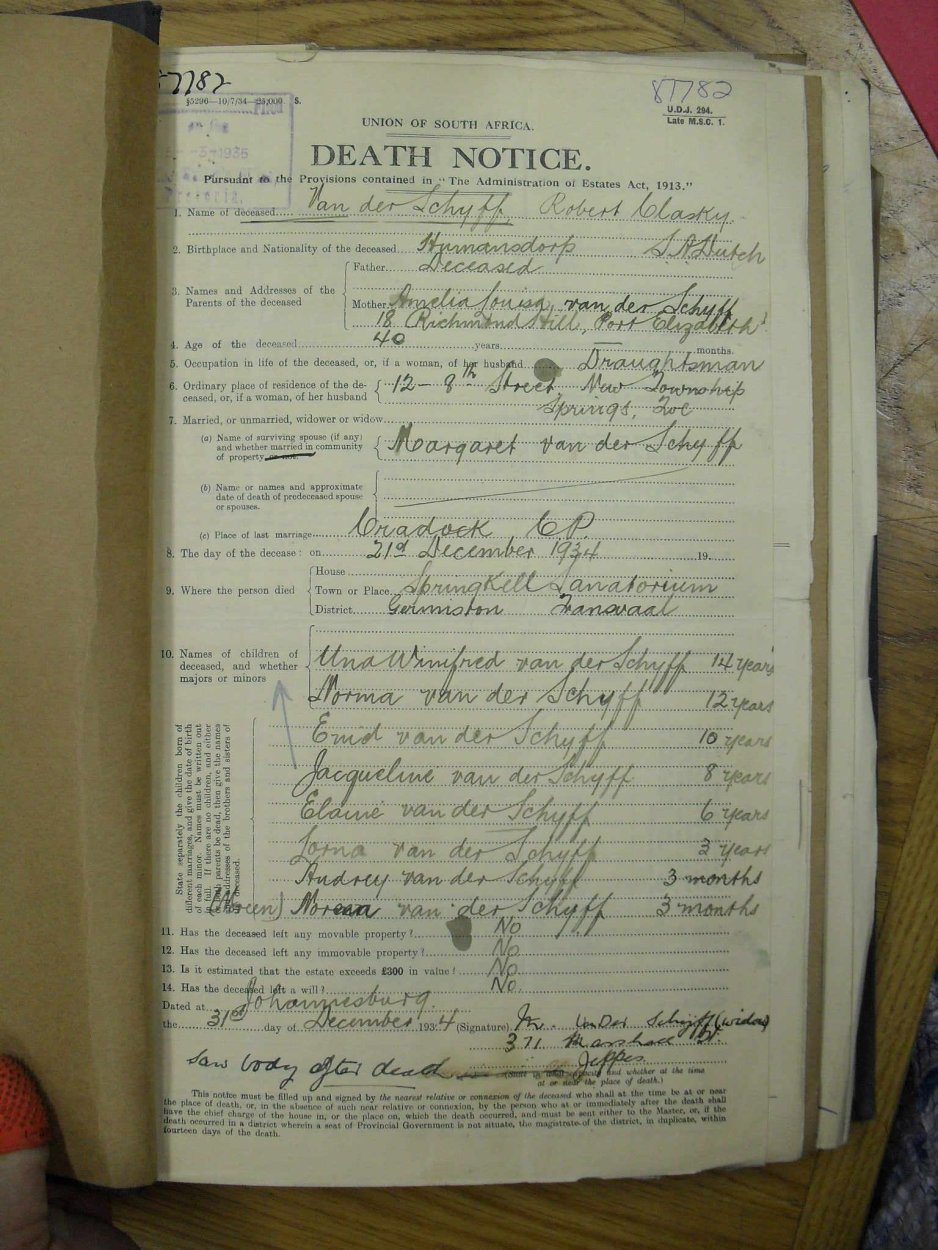 87782
87782
§5296—10/7/34—25,000 S.
U.D.J. 294.
Late M.S.C. 1.
-3-1935
UNION OF SOUTH AFRICA.
DEATH NOTICE.
Pursuant to the Provisions contained in "The Administration of Estates Act, 1913."
1. Name of deceased Van der Schyff, Robert Clasky.
2. Birthplace and Nationality of the deceased Humansdorp S.A. Dutch
3. Names and Addresses of the Parents of the deceased
Father Deceased
Mother Amelia Louisa van der Schyff
18 Richmond Hill, Port Elizabeth
4. Age of the deceased 40 years months.
5. Occupation in life of the deceased, or, if a woman, of her husband Draughtsman
6. Ordinary place of residence of the de-
ceased, or, if a woman, of her husband
12 - 8th Street, New Township
Springs,
7. Married, or unmarried, widower or widow
(a) Name of surviving spouse (if any)
and whether married in community
of property or not.
Margaret van der Schyff
(b) Name or names and approximate
date of death of predeceased spouse
or spouses.
(c) Place of last marriage Cradock C.P.
8. The day of the decease: on 21st December 1934 19
9. Where the person died
House
Town or Place Springkell Sanatorium
District Germiston Transvaal
10. Names of children of
deceased, and whether
majors or minors
State separately the children born of
different marriages, and give the date of birth
of each minor. Names must be written out
in full. If there are no children, and either
or both parents be dead, then give the names
and addresses of the brothers and sisters of
deceased.
Una Winifred van der Schyff 14 years
Norma van der Schyff 12 years
Enid van der Schyff 10 years
Jacqueline van der Schyff 8 years
Elaine van der Schyff 6 years
Lorna van der Schyff 3 years
Audrey van der Schyff 3 months
(Noreen) van der Schyff 3 months
11. Has the deceased left any movable property? No
12. Has the deceased left any immovable property? No
13. Is it estimated that the estate exceeds £300 in value? No
14. Has the deceased left a will? No.
Dated at Johannesburg.
the 31st day of December 1934 (Signature) M. van der Schyff (widow)
371 Marshall St.
Jeppes
saw body after dead
and whether at the time
at or near the place of death.)
This notice must be filled up and signed by the nearest relative or connexion of the deceased who shall at the time be at or near
the place of death, or, in the absence of such near relative or connexion, by the person who at or immediately after the death shall
have the chief charge of the house in, or the place on, which the death occurred, and must be sent either to the Master, or, if the
death occurred in a district wherein a seat of Provincial Government is not situate, the magistrate of the district, in duplicate, within
fourteen days of the death.